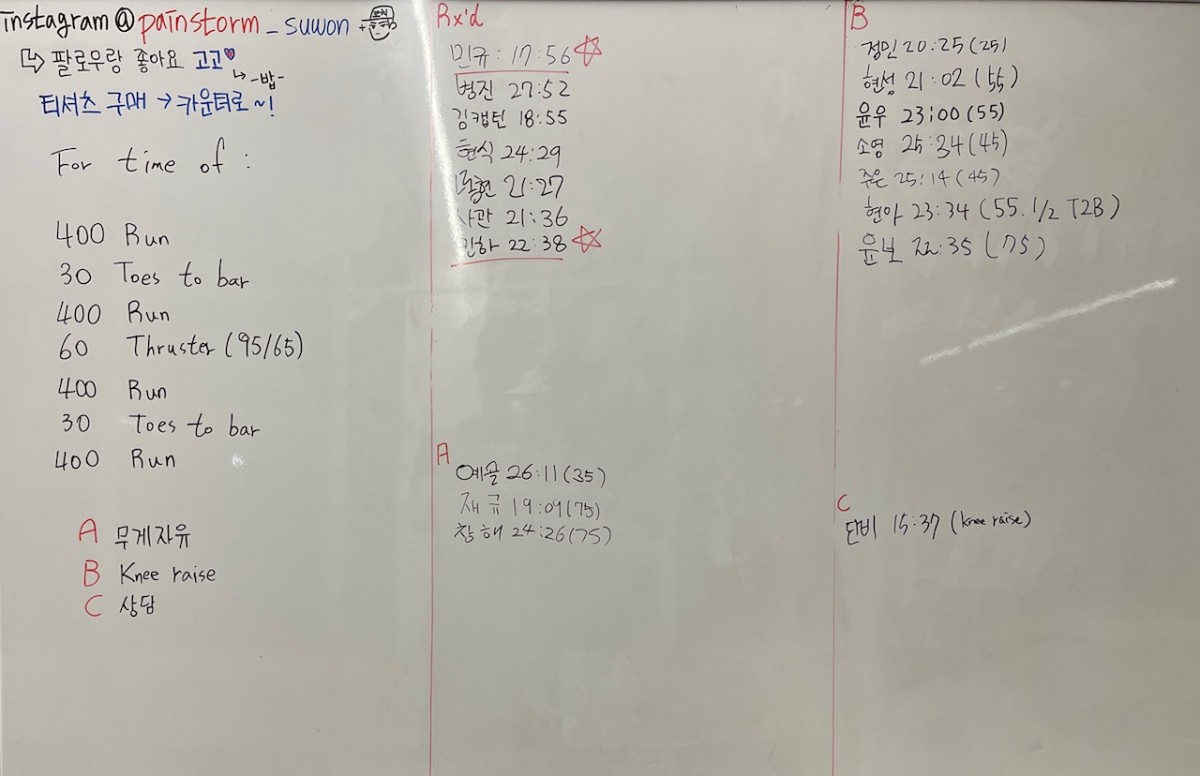 instagram@painstorm_suwon
팔로우랑 좋아요 고고
-밥-
티셔츠 구매 → 카운터로~!
For time of :
400 Run
30 Toes to bar
400 Run
60 Thruster (95/65)
400 Run
30 Toes to bar
400 Run
A 무게자유
B Knee raise
C 상담
Rx'd
민규: 17:56
병진 27:52
김캡틴 18:55
현식 24:29
21:27
사관 21:36
민하 22:38
A
예슬 26:11(35)
재규 19:09(75)
창해 24:26(75)
B
정민 20:25(25)
현성 21:02(55)
윤우 23:00(55)
소영 25:34(45)
주은 25:14(45)
현아 23:34(55. 1/2 T2B)
윤보 22:35(75)
C
단비 15:37(knee raise)